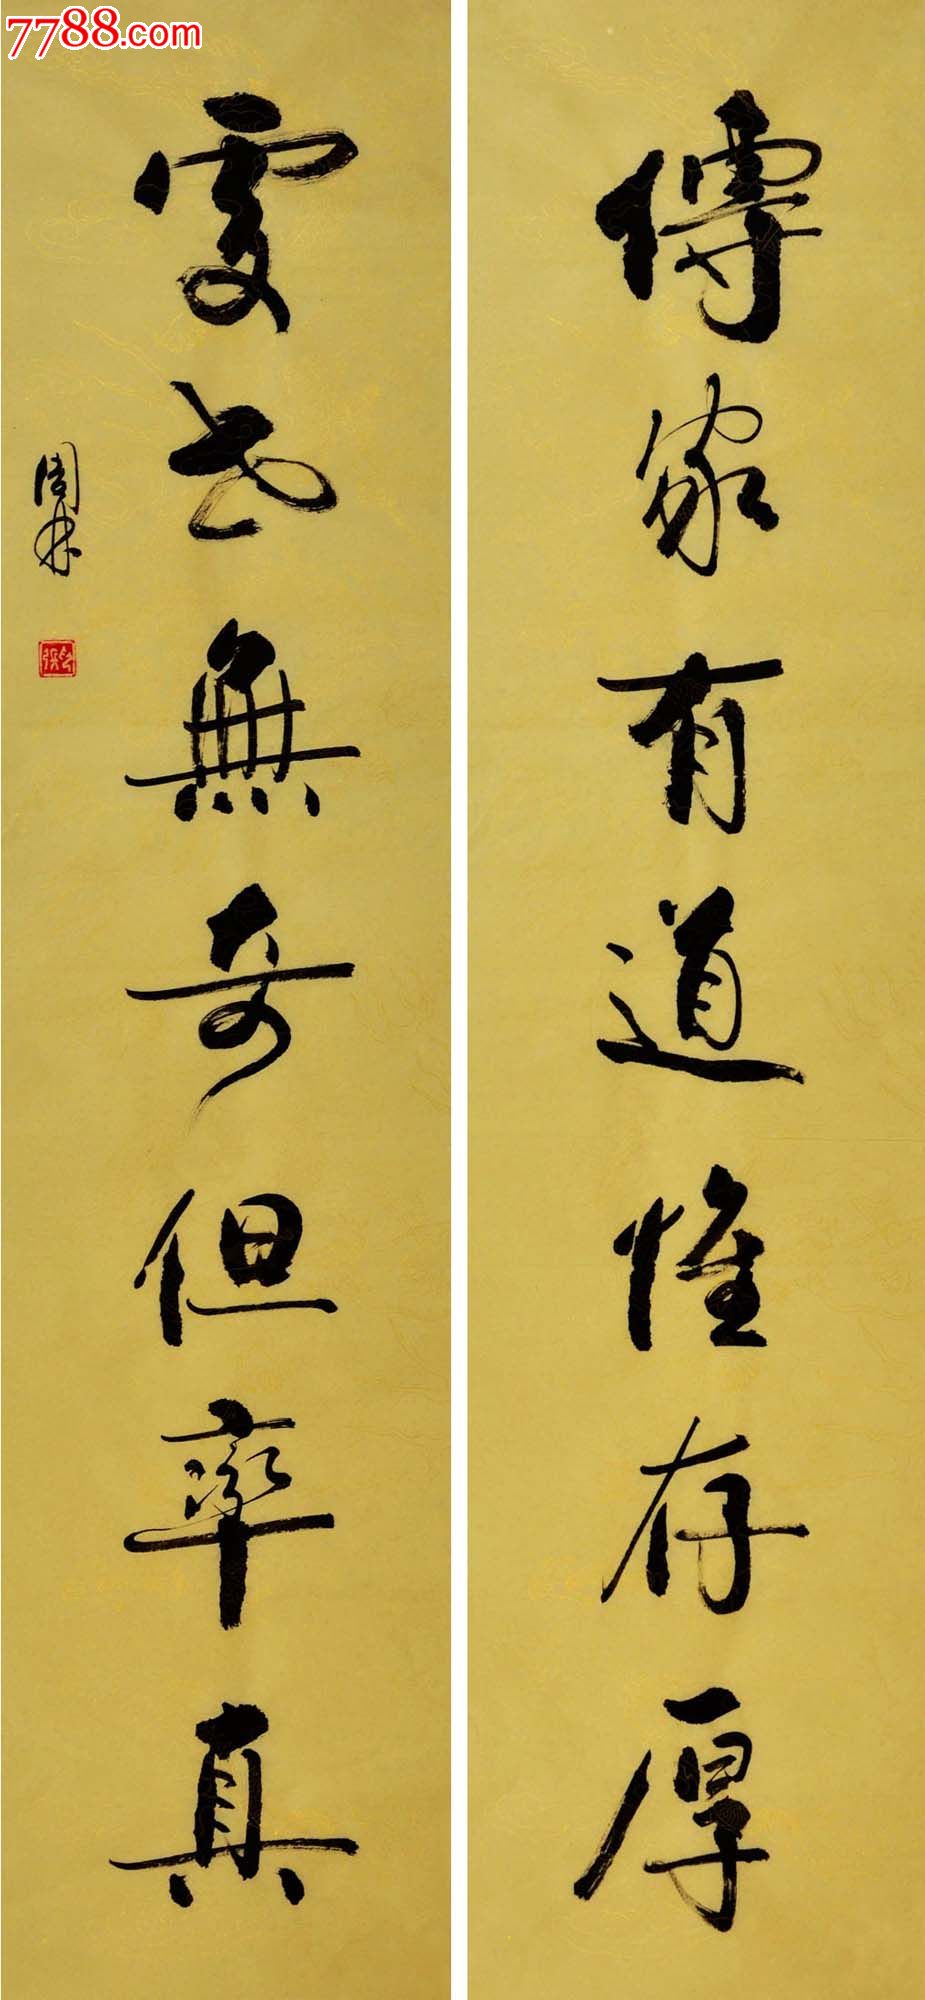 7788.com
傳家有道惟存厚
處世無奇但率真
周林